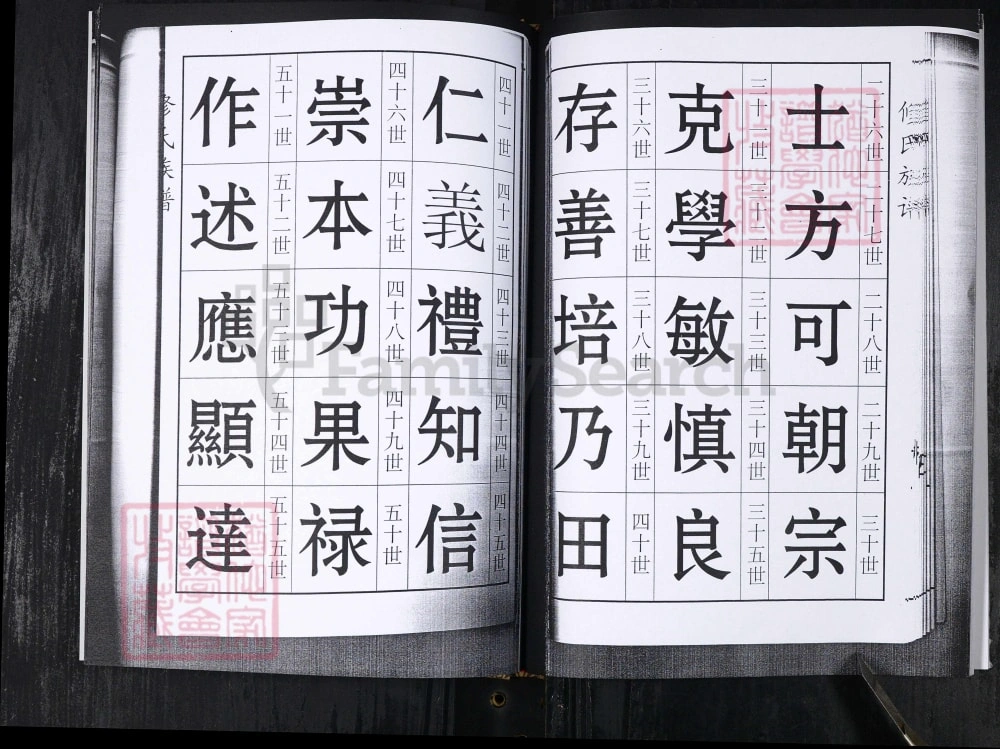 二十六世 士
二十七世 方
二十八世 可
二十九世 朝
三十世 宗
三十一世 克
三十二世 學
三十三世 敏
三十四世 慎
三十五世 良
三十六世 存
三十七世 善
三十八世 培
三十九世 乃
四十世 田
四十一世 仁
四十二世 義
四十三世 禮
四十四世 知
四十五世 信
四十六世 崇
四十七世 本
四十八世 功
四十九世 果
五十世 禄
五十一世 作
五十二世 述
五十三世 應
五十四世 顯
五十五世 達
氏族譜
FamilySearch